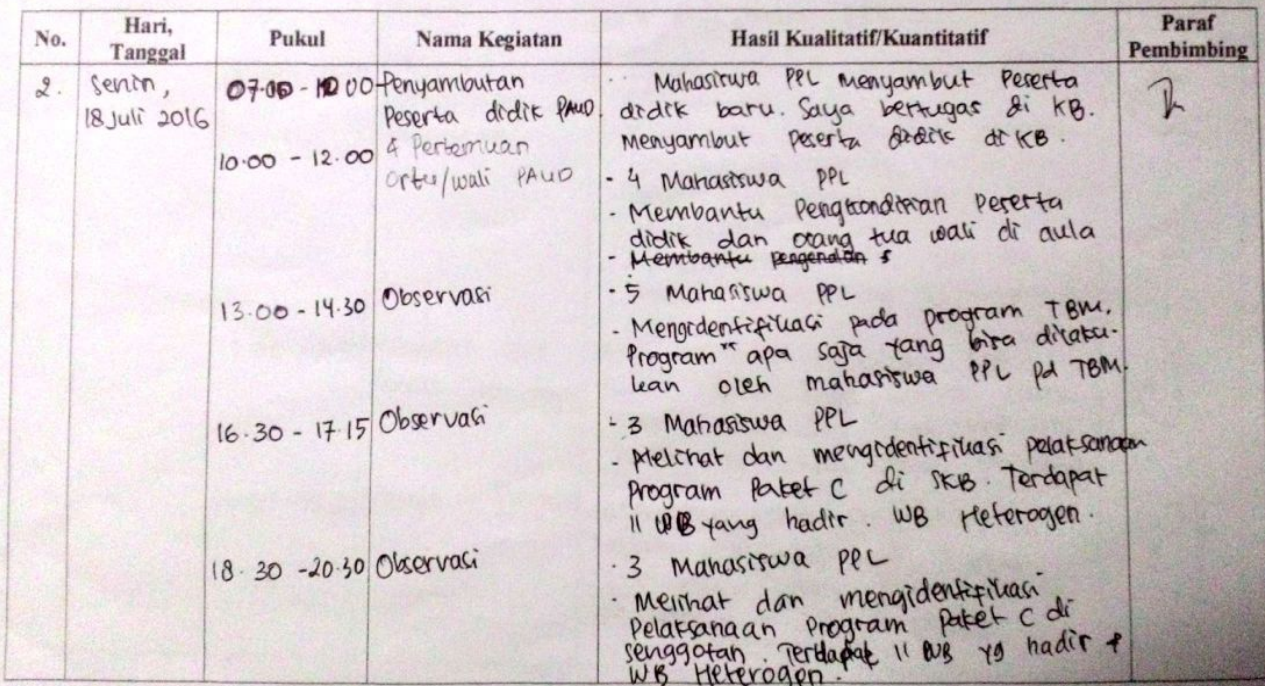 No. Hari, Tanggal Pukul Nama Kegiatan Hasil Kualitatif/Kuantitatif Paraf Pembimbing
2. Senin, 18 Juli 2016
07.00 - 10.00 Penyambutan
Peserta didik PAUD.
Mahasiswa PPL menyambut Peserta
didik baru. Saya bertugas di KB.
Menyambut Peserta didik di KB.
10.00 - 12.00 & Pertemuan
Ortu/wali PAUD
- 4 Mahasiswa PPL
- Membantu Pengkondisian Peserta
didik dan orang tua wali di aula
- Membantu pengenalan s
13.00 - 14.30 Observasi
- 5 Mahasiswa PPL
- Mengidentifikasi pada program TBM.
Program" apa saja yang bisa dilaku-
kan oleh mahasiswa PPL pd TBM.
16.30 - 17.15 Observasi
- 3 Mahasiswa PPL
- Melihat dan mengidentifikasi pelaksanaan
Program Paket C di SKB. Terdapat
11 WB yang hadir. WB Heterogen.
18.30 - 20.30 Observasi
- 3 Mahasiswa PPL
- Melihat dan mengidentifikasi
Pelaksanaan Program Paket C di
senggotan. Terdapat 11 WB yg hadir &
WB Heterogen.